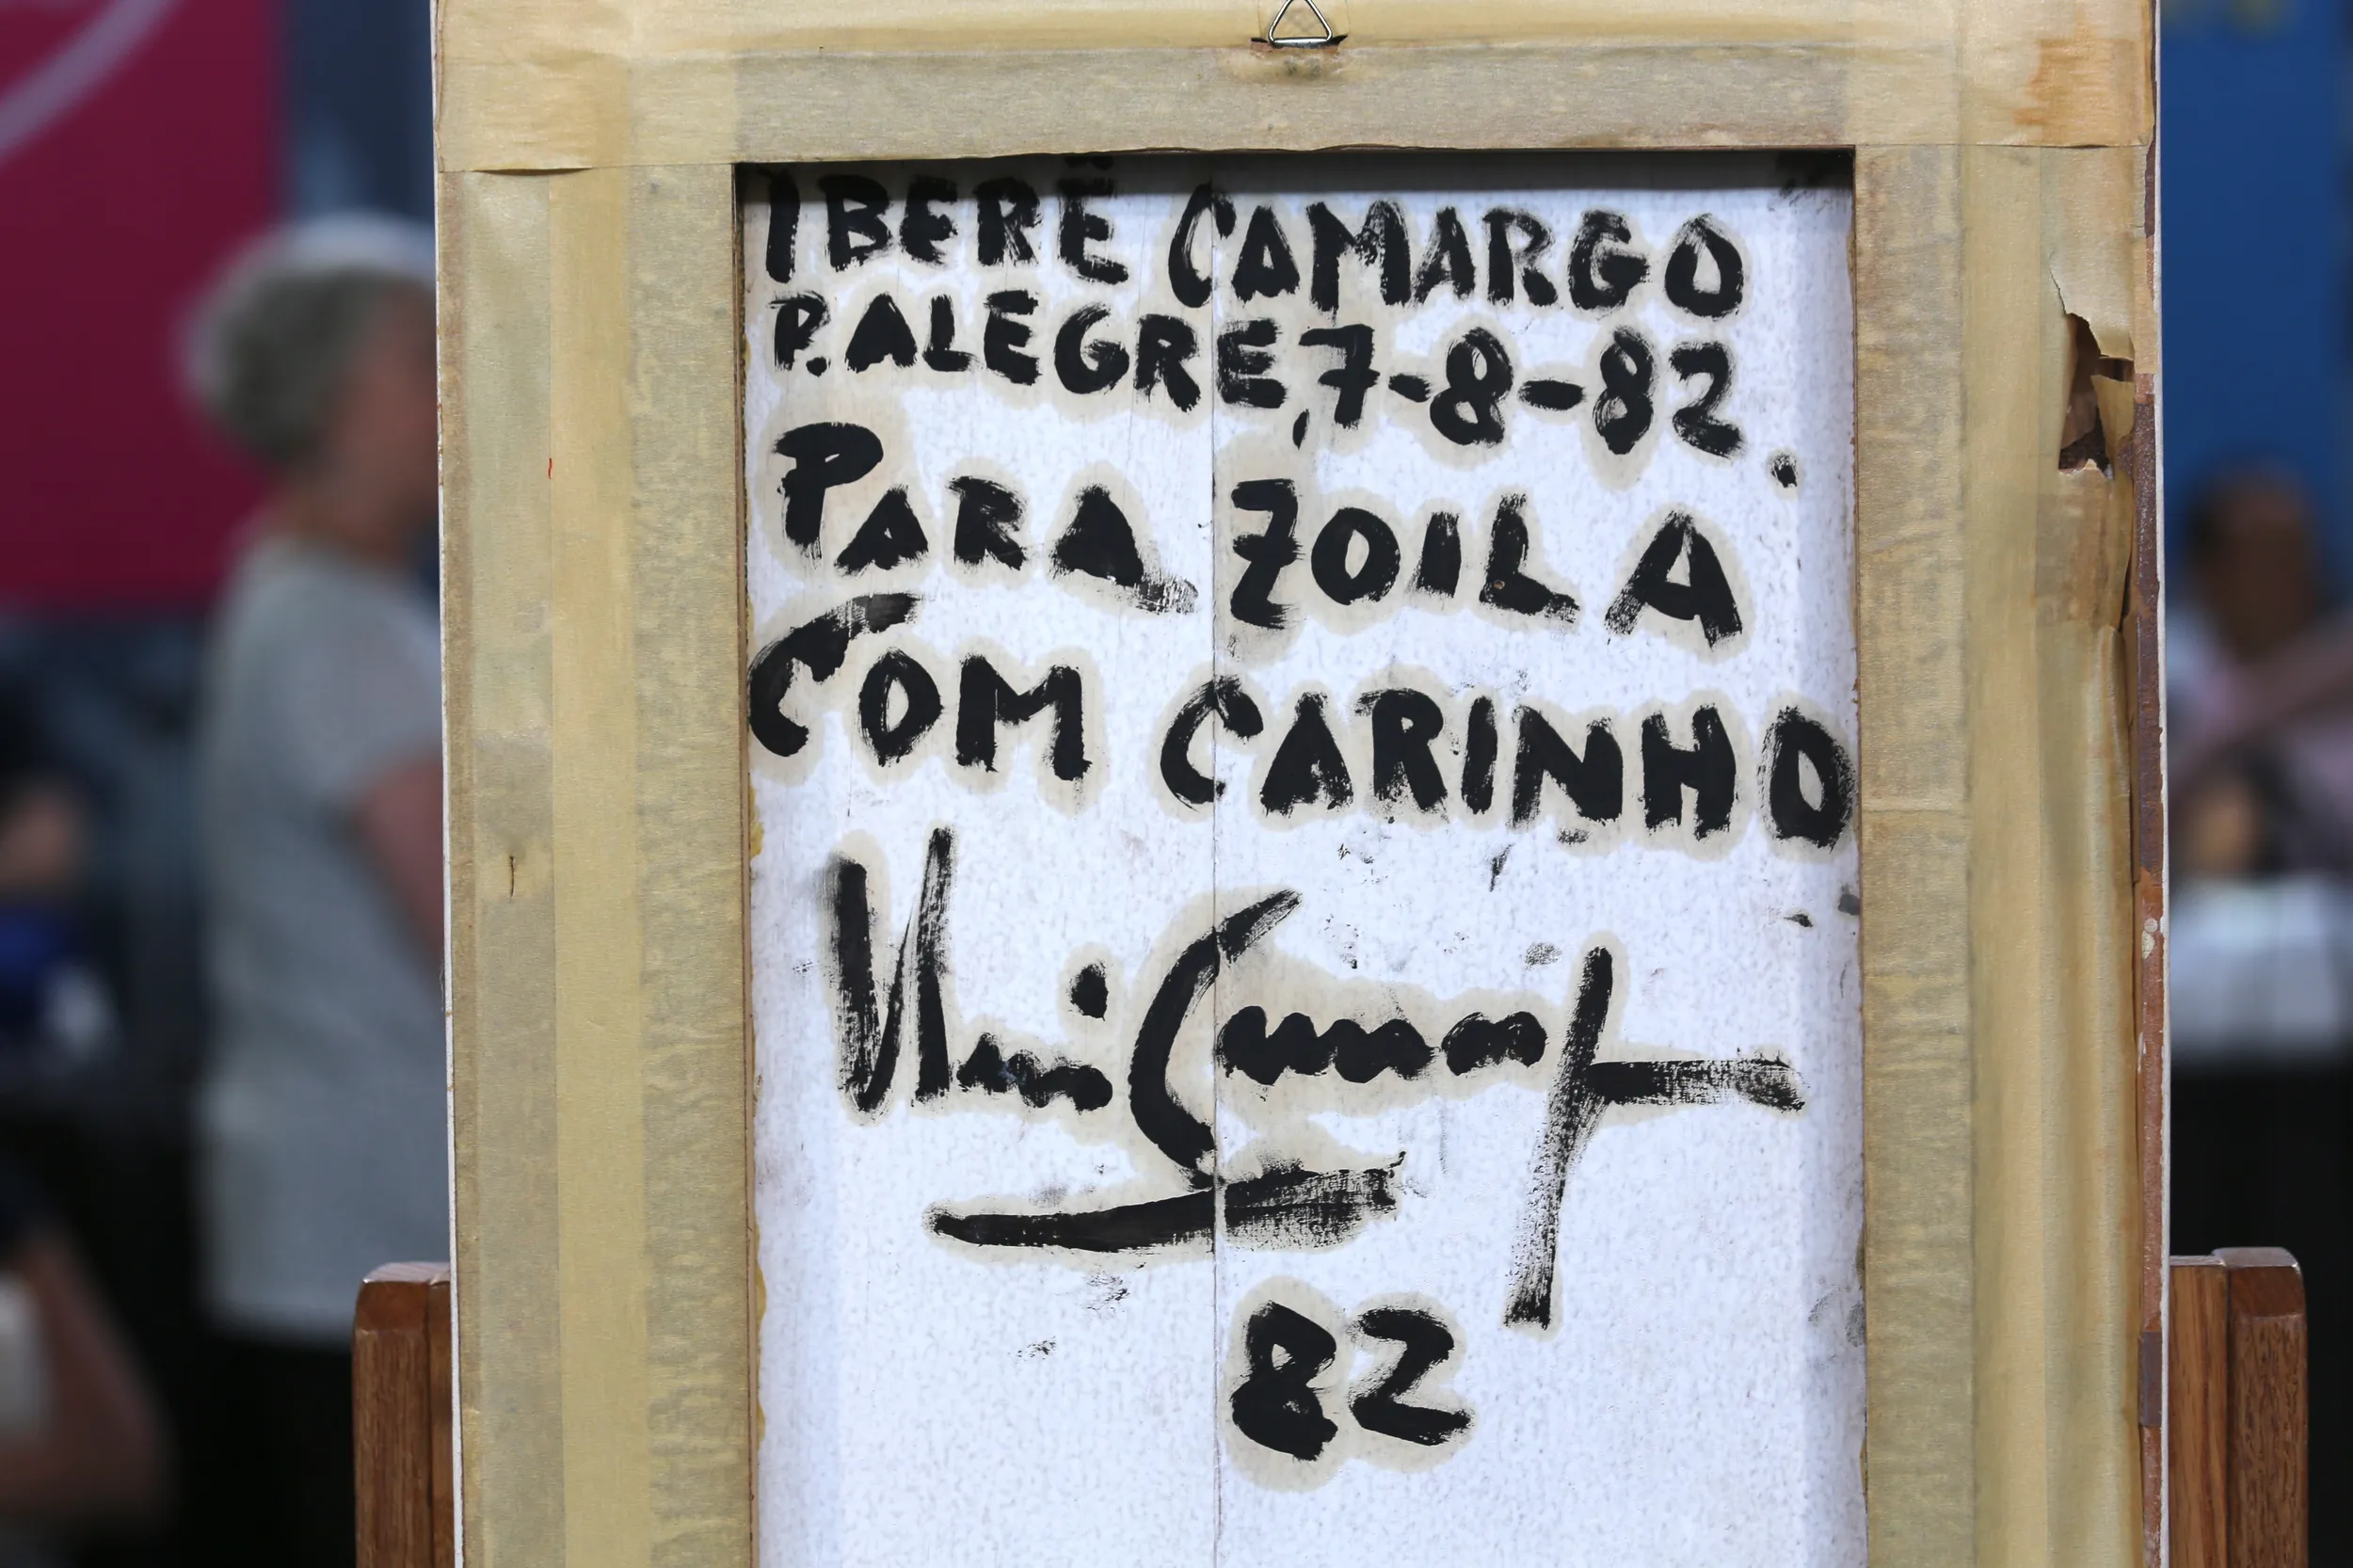 IBERÊ CAMARGO
P. ALEGRE, 7-8-82.
PARA ZOILA
COM CARINHO
82